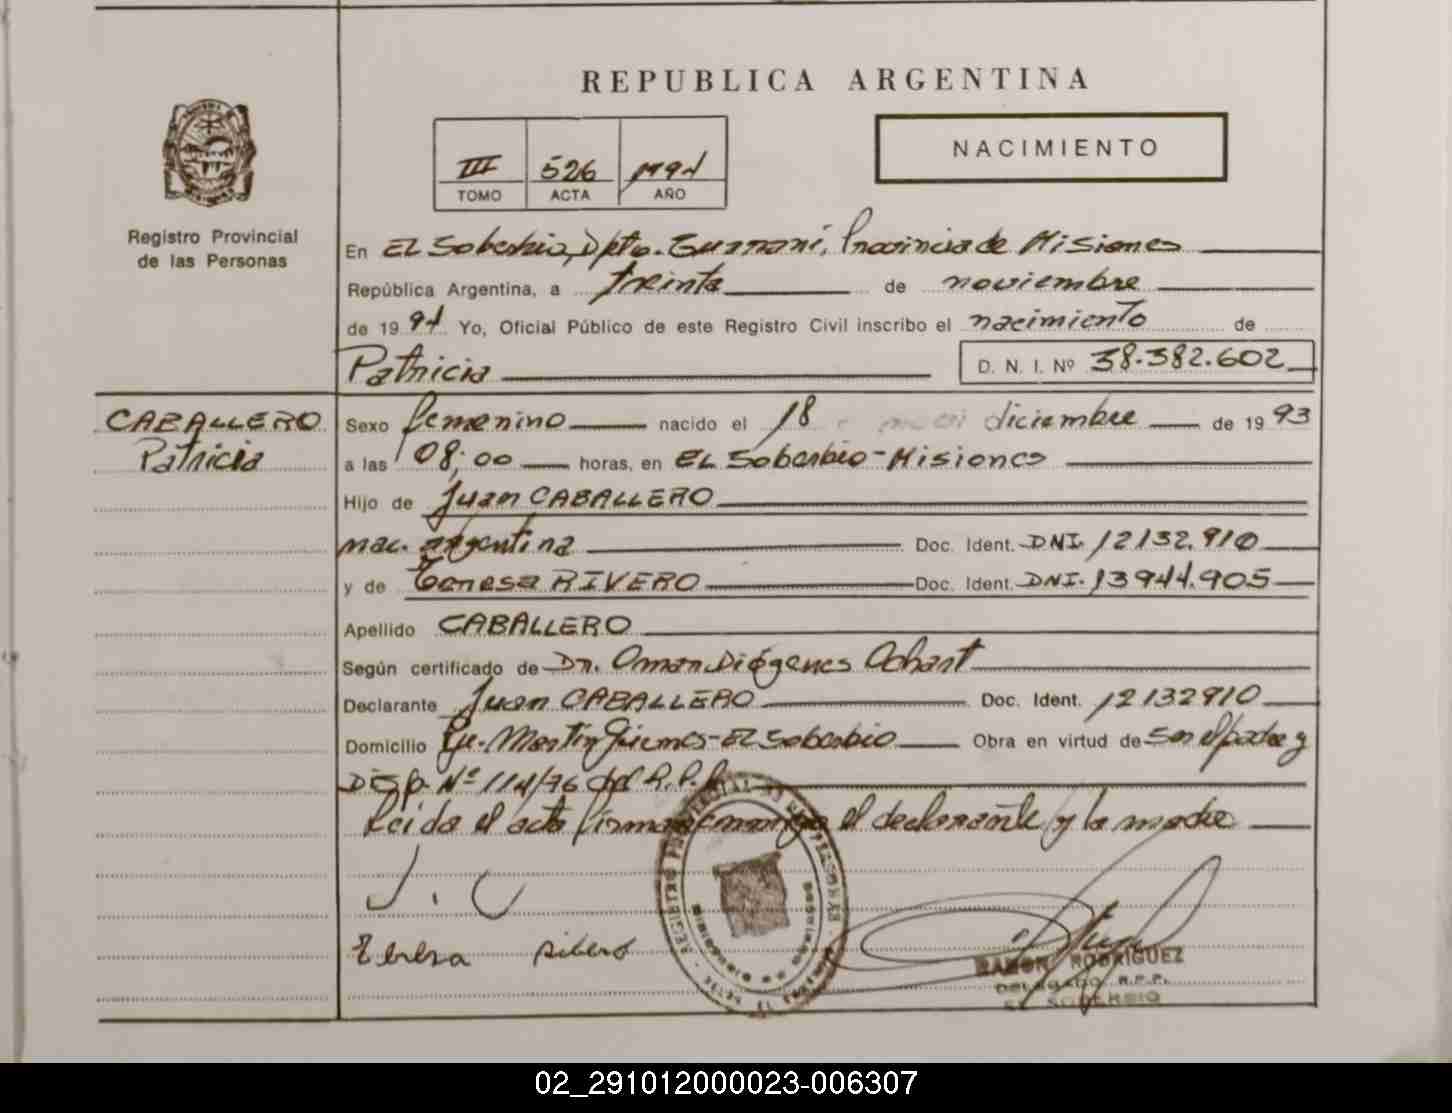 REPUBLICA ARGENTINA
NACIMIENTO
III 526 1994
TOMO ACTA AÑO
Registro Provincial
de las Personas
En EL Soberbio, Dpto. Guaraní, Provincia de Misiones
República Argentina, a treinta de noviembre
de 1994 Yo, Oficial Público de este Registro Civil inscribo el nacimiento de
Patricia D. N. I. Nº 38.382.602
CABALLERO
Patricia
Sexo femenino nacido el 18 diciembre de 1993
a las 08:00 horas, en EL Soberbio-Misiones
Hijo de Juan CABALLERO
nac. argentina Doc. Ident. DNI. 12132.910
y de Teresa RIVERO Doc. Ident. DNI. 13944.905
Apellido CABALLERO
Según certificado de Dr. Omar Diógenes
Declarante Juan CABALLERO Doc. Ident. 12132910
Domicilio Martín Güemes-EL Soberbio Obra en virtud de ser el padre y
Disp. Nº 114/76 del R.P.P.
Leida el acta firman conmigo el declarante y la madre
J. C
Teresa Ribero
RAMON RODRIGUEZ
DELEGADO R.P.P.
EL SOBERBIO
02_291012000023-006307